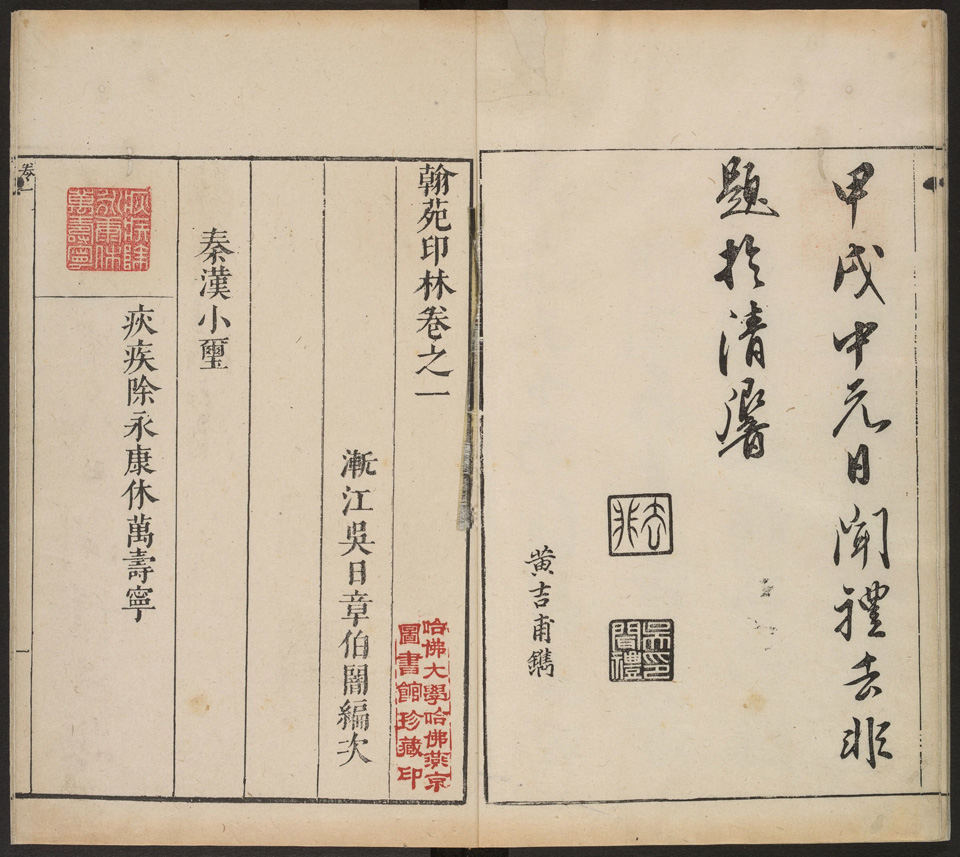 甲戌中元日聞禮去非
題於清響
去非
吳聞禮印
黄吉甫鐫
翰苑印林卷之一
哈佛大學哈佛燕京
圖書館珍藏印
漸江吳日章伯闇編次
秦漢小璽
疢疾除永康休萬壽寧
疢疾除永康休萬壽寧
卷一
一